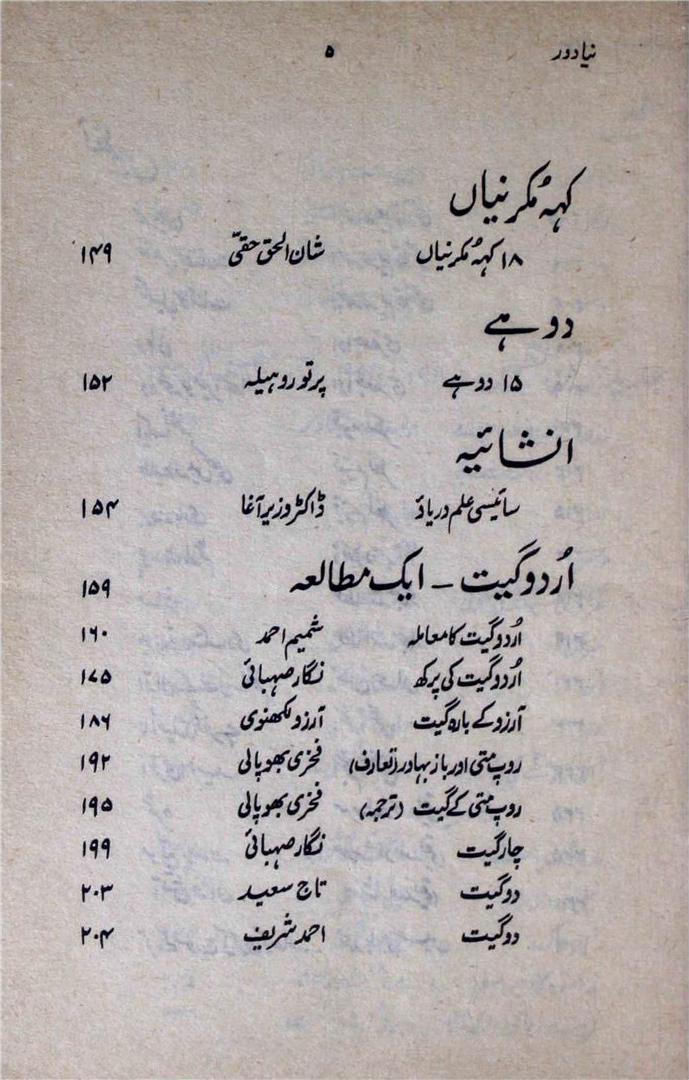 نیا دور ۵
کہہ مُکرنیاں
۱۸ کہہ مُکرنیاں شان الحق حقّی ۱۴۹
دوہے
۱۵ دوہے پرتو روہیلہ ۱۵۲
انشائیہ
سائیسی علم دریاؤ ڈاکٹر وزیر آغا ۱۵۴
اُردو گیت ۔ ایک مطالعہ ۱۵۹
اُردو گیت کا معاملہ شمیم احمد ۱۶۰
اُردو گیت کی پرکھ نگار صہبائی ۱۷۵
آرزو کے بارہ گیت آرزو لکھنوی ۱۸۶
روپ متی اور باز بہادر (تعارف) فخری بھوپالی ۱۹۲
روپ متی کے گیت (ترجمہ) فخری بھوپالی ۱۹۵
چار گیت نگار صہبائی ۱۹۹
دو گیت تاج سعید ۲۰۳
دو گیت احمد شریف ۲۰۴